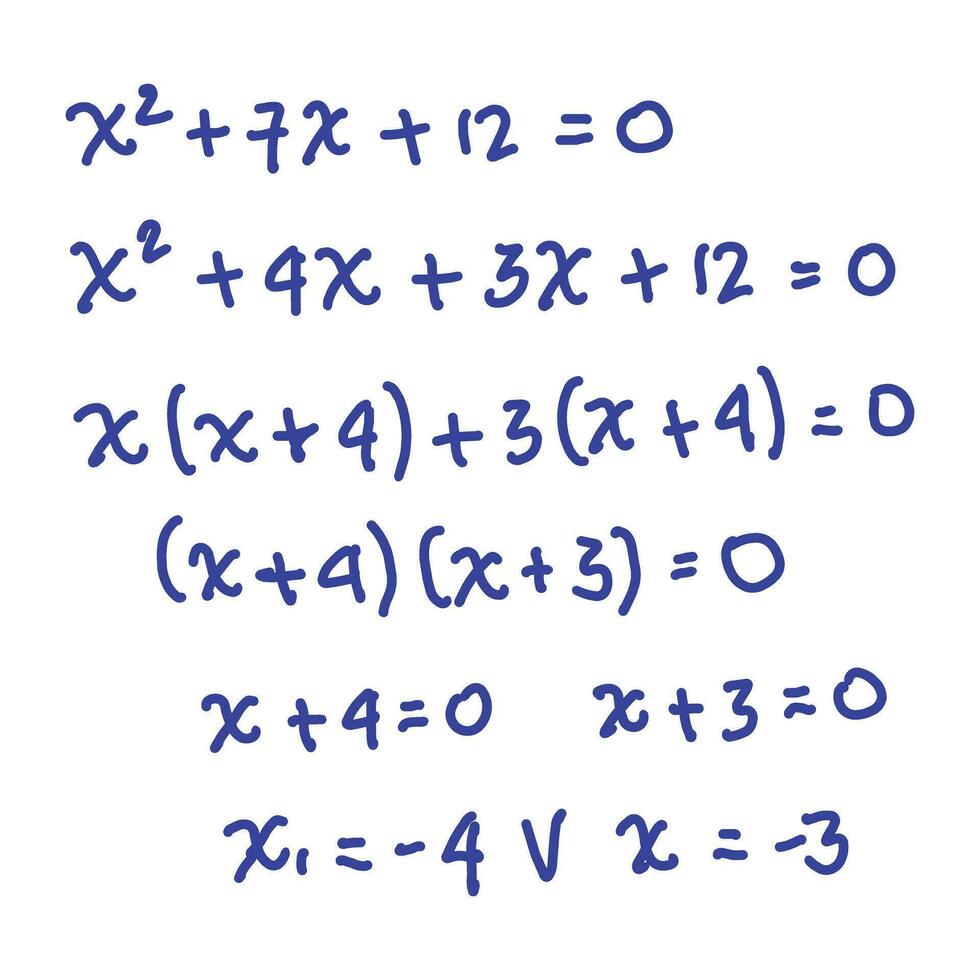 x² + 7x + 12 = 0
x² + 4x + 3x + 12 = 0
x(x+4) + 3(x+4) = 0
(x+4)(x+3) = 0
x+4=0 x+3=0
x₁ = -4 V x = -3